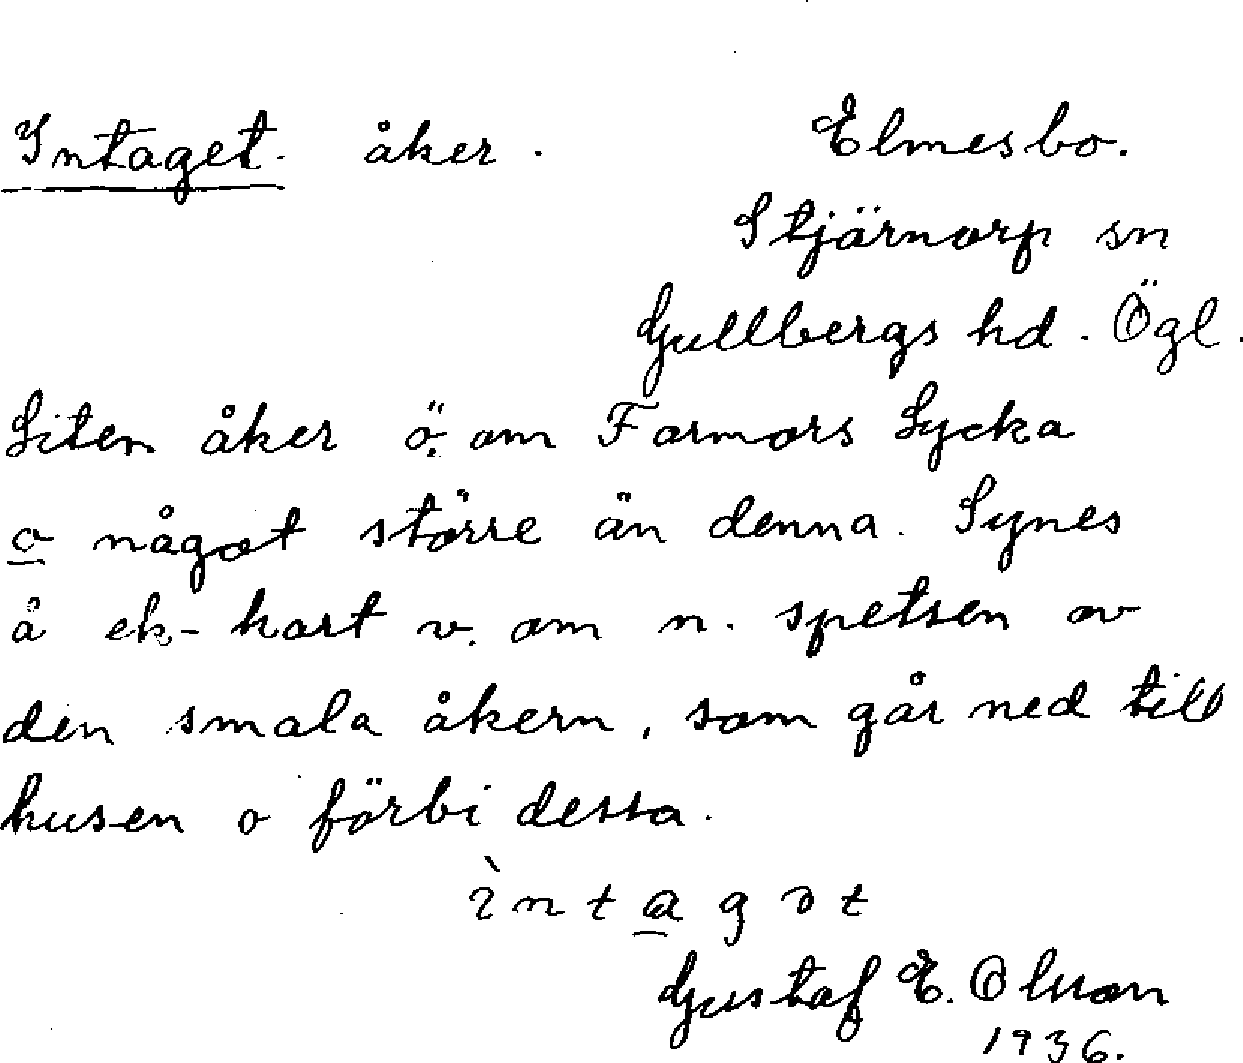 Intaget. åker. Elmesbo.
Stjärnorp sn
Gullbergs hd. Ögl.
Liten åker ö. om Farmors Lycka
o något större än denna. Synes
å ek-kart v. om n. spetsen av
den smala åkern, som går ned till
husen o förbi dessa.
ìntagət
Gustaf E. Olsson
1936.